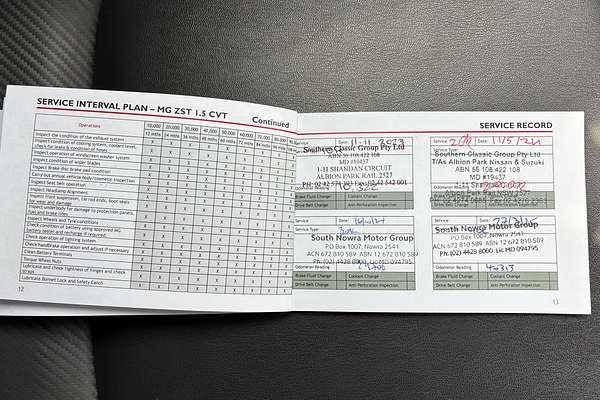 SERVICE INTERVAL PLAN – MG ZST 1.5 CVT
Continued
Operations
10,000 20,000 30,000 40,000 50,000 60,000 70,000 80,000
12 mths 24 mths 36 mths 48 mths 60 mths 72 mths 84 mths
Inspect the condition of the exhaust system
Inspect condition of cooling system, coolant level,
check for leaks & condition of hoses
Inspect operation of windscreen washer system
Inspect condition of wiper blades
Inspect Brake disc brake pad condition
Carry out annual vehicle body/cosmetic inspection
Inspect Seat belt operation
Inspect Headlamp Alignment
Inspect front suspension, tie rod ends, boot seals
for wear and damage
Inspect underbody for damage to protection panels,
fuel and brake lines
Inspect Wheels and Tyre conditions
Check condition of battery using approved MG
battery tester and recharge if required.
Check operation of lighting system
Check handbrake operation and adjust if necessary
Clean Battery Terminals
Torque Wheel Nuts
Lubricate and check tightness of hinges and check
straps
Lubricate Bonnet Lock and Safety Catch
12
SERVICE RECORD
Date: 11-11-2023
Southern Classic Group Pty Ltd
ABN 56 108 422 108
MD#19437
1-11 SHANDAN CIRCUIT
ALBION PARK RAIL 2527
PH: 02 42 574 203 Fax: 02 42 542 001
Brake Fluid Change Coolant Change
Drive Belt Change Anti Perforation Inspection
Date: 1/5/24
Service Type:
Southern Classic Group Pty Ltd
T/As Albion Park Nissan & Suzuki
ABN 56 108 422 108
MD #19437
Albion Park Rail NSW 2527
Brake Fluid Change Coolant Change
Drive Belt Change Anti Perforation Inspection
Date:
Service Type:
South Nowra Motor Group
PO Box 1007, Nowra 2541
ACN 672 810 589 ABN 12 672 810 589
Ph: (02) 4428 8000 Lic MD 094795
Odometer Reading
Brake Fluid Change Coolant Change
Drive Belt Change Anti Perforation Inspection
South Nowra Motor Group
PO Box 1007, Nowra 2541
ACN 672 810 589 ABN 12 672 810 589
Ph: (02) 4428 8000 Lic MD 094795
Odometer Reading
Brake Fluid Change Coolant Change
Drive Belt Change Anti Perforation Inspection
13